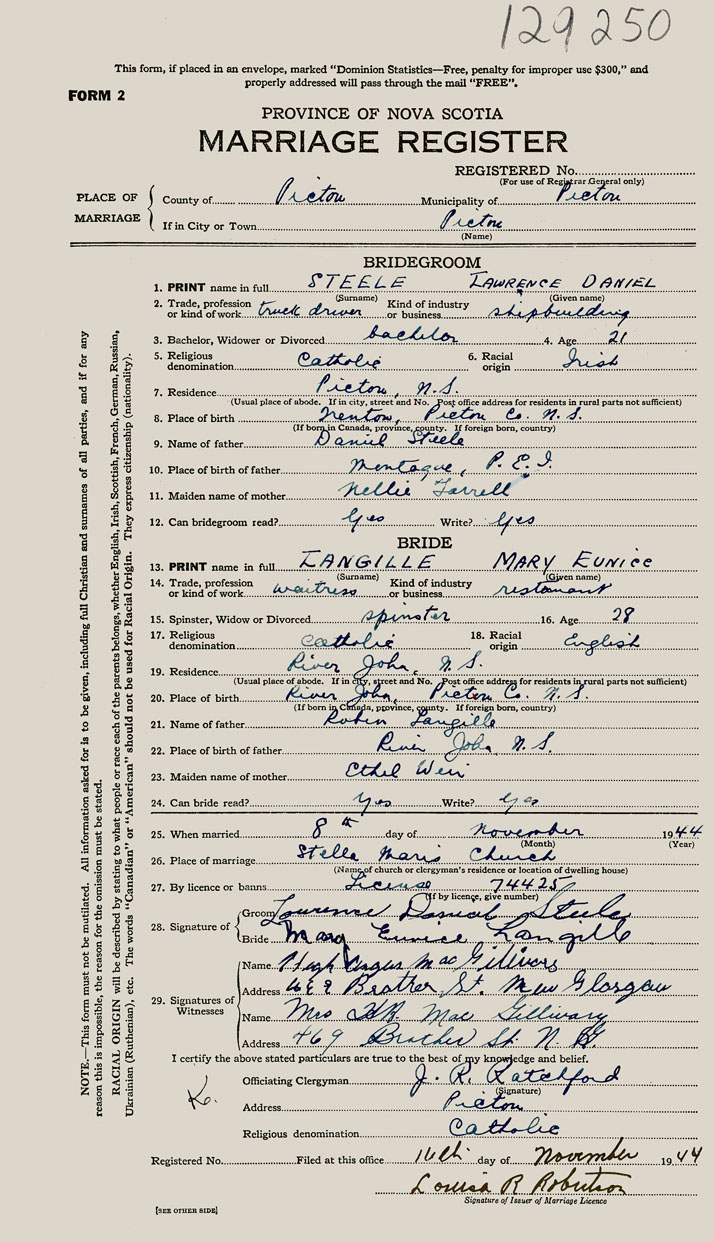 129250
This form, if placed in an envelope, marked “Dominion Statistics—Free, penalty for improper use $300,” and
properly addressed will pass through the mail “FREE”.
FORM 2
PROVINCE OF NOVA SCOTIA
MARRIAGE REGISTER
REGISTERED No.
(For use of Registrar General only)
PLACE OF MARRIAGE
County of Pictou Municipality of Pictou
If in City or Town Pictou
(Name)
BRIDEGROOM
1. PRINT name in full STEELE LAWRENCE DANIEL
(Surname) (Given name)
2. Trade, profession or kind of work truck driver Kind of industry or business shipbuilding
3. Bachelor, Widower or Divorced bachelor 4. Age 21
5. Religious denomination Catholic 6. Racial origin Irish
7. Residence Pictou, N.S.
(Usual place of abode. If in city, street and No. Post office address for residents in rural parts not sufficient)
8. Place of birth Trenton, Pictou Co. N.S.
(If born in Canada, province, county. If foreign born, country)
9. Name of father Daniel Steele
10. Place of birth of father Montague, P.E.I.
11. Maiden name of mother Nellie Farrell
12. Can bridegroom read? Yes Write? Yes
BRIDE
13. PRINT name in full LANGILLE MARY EUNICE
(Surname) (Given name)
14. Trade, profession or kind of work waitress Kind of industry or business restaurant
15. Spinster, Widow or Divorced spinster 16. Age 28
17. Religious denomination Catholic 18. Racial origin English
19. Residence River John, N.S.
(Usual place of abode. If in city, street and No. Post office address for residents in rural parts not sufficient)
20. Place of birth River John, Pictou Co. N.S.
(If born in Canada, province, county. If foreign born, country)
21. Name of father Robin Langille
22. Place of birth of father River John N.S.
23. Maiden name of mother Ethel Weir
24. Can bride read? Yes Write? Yes
25. When married 8th day of November 1944
(Month) (Year)
26. Place of marriage Stella Maris Church
(Name of church or clergyman's residence or location of dwelling house)
27. By licence or banns License 74425
(If by licence, give number)
28. Signature of
Groom Lawrence Daniel Steele
Bride Mary Eunice Langille
29. Signatures of Witnesses
Name Hugh Angus MacGillivery
Address 469 Brother St. New Glasgow
Name Mrs H.A. Mac Gillivary
Address 469 Brother St. N.G.
I certify the above stated particulars are true to the best of my knowledge and belief.
Officiating Clergyman J. R. Ratchford
(Signature)
K.
Address Pictou
Religious denomination Catholic
Registered No. Filed at this office 16th day of November 1944
Louisa R Robertson
Signature of Issuer of Marriage Licence
[SEE OTHER SIDE]
NOTE.—This form must not be mutilated. All information asked for is to be given, including full Christian and surnames of all parties, and if for any
reason this is impossible, the reason for the omission must be stated.
RACIAL ORIGIN will be described by stating to what people or race each of the parents belongs, whether English, Irish, Scottish, French, German, Russian,
Ukrainian (Ruthenian), etc. The words “Canadian” or “American” should not be used for Racial Origin. They express citizenship (nationality).